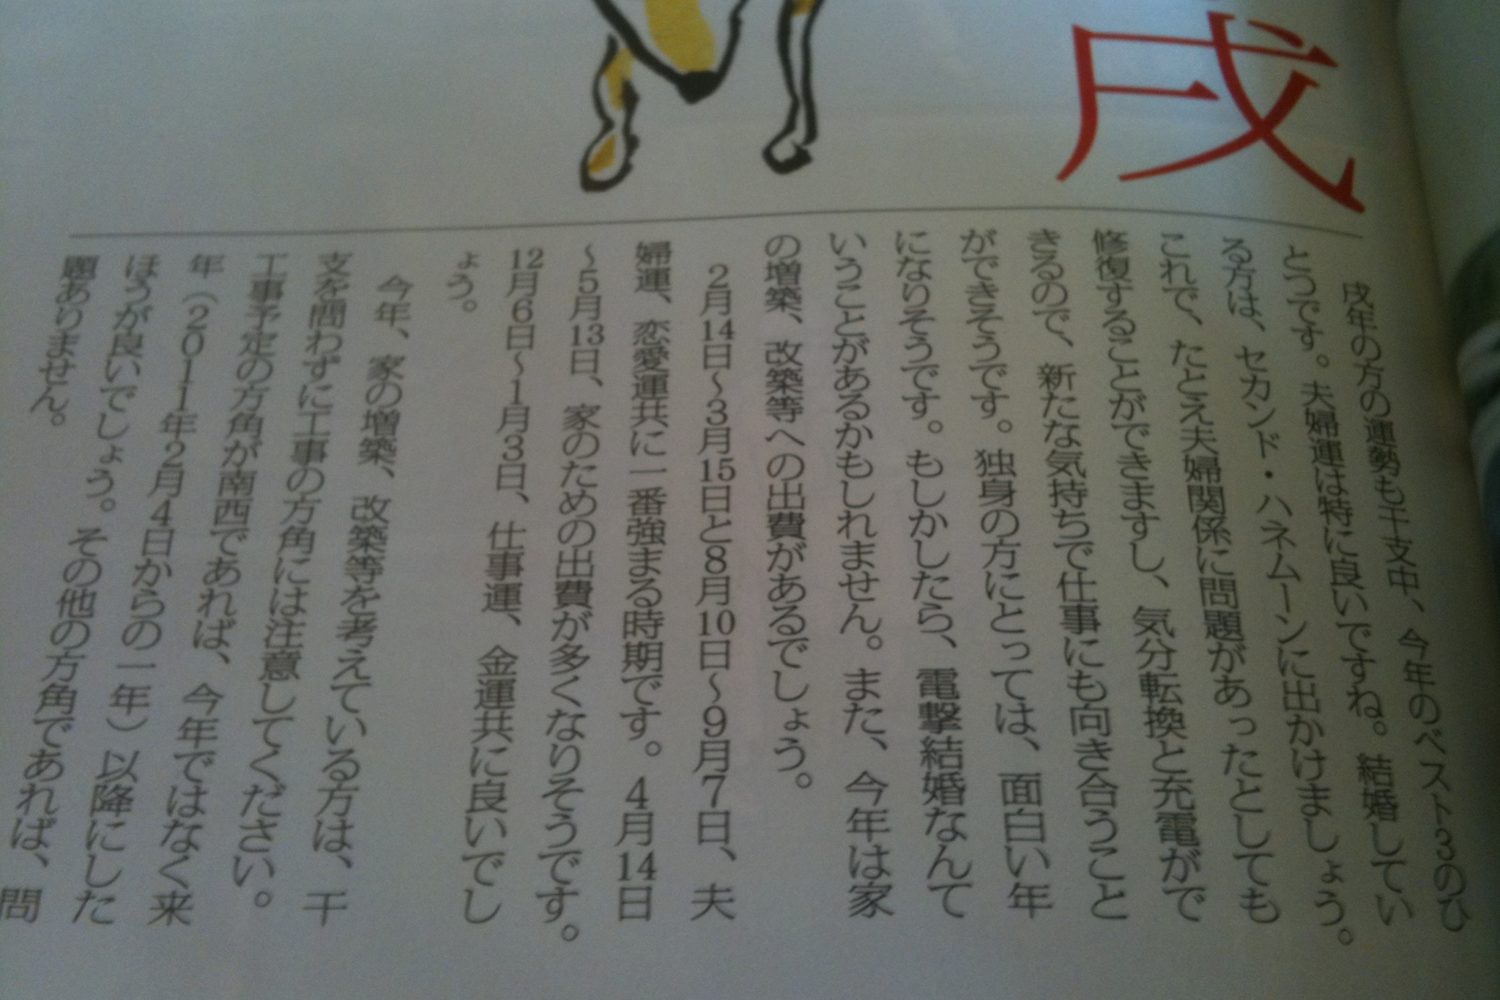 戌
戌年の方の運勢も干支中、今年のベスト3のひ
とつです。夫婦運は特に良いですね。結婚してい
る方は、セカンド・ハネムーンに出かけましょう。
これで、たとえ夫婦関係に問題があったとしても
修復することができますし、気分転換と充電がで
きるので、新たな気持ちで仕事にも向き合うこと
ができそうです。独身の方にとっては、面白い年
になりそうです。もしかしたら、電撃結婚なんて
いうことがあるかもしれません。また、今年は家
の増築、改築等への出費があるでしょう。
2月14日〜3月15日と8月10日〜9月7日、夫
婦運、恋愛運共に一番強まる時期です。4月14日
〜5月13日、家のための出費が多くなりそうです。
12月6日〜1月3日、仕事運、金運共に良いでし
ょう。
今年、家の増築、改築等を考えている方は、干
支を問わずに工事の方角には注意してください。
工事予定の方角が南西であれば、今年ではなく来
年（2011年2月4日からの一年）以降にした
ほうが良いでしょう。その他の方角であれば、問
題ありません。